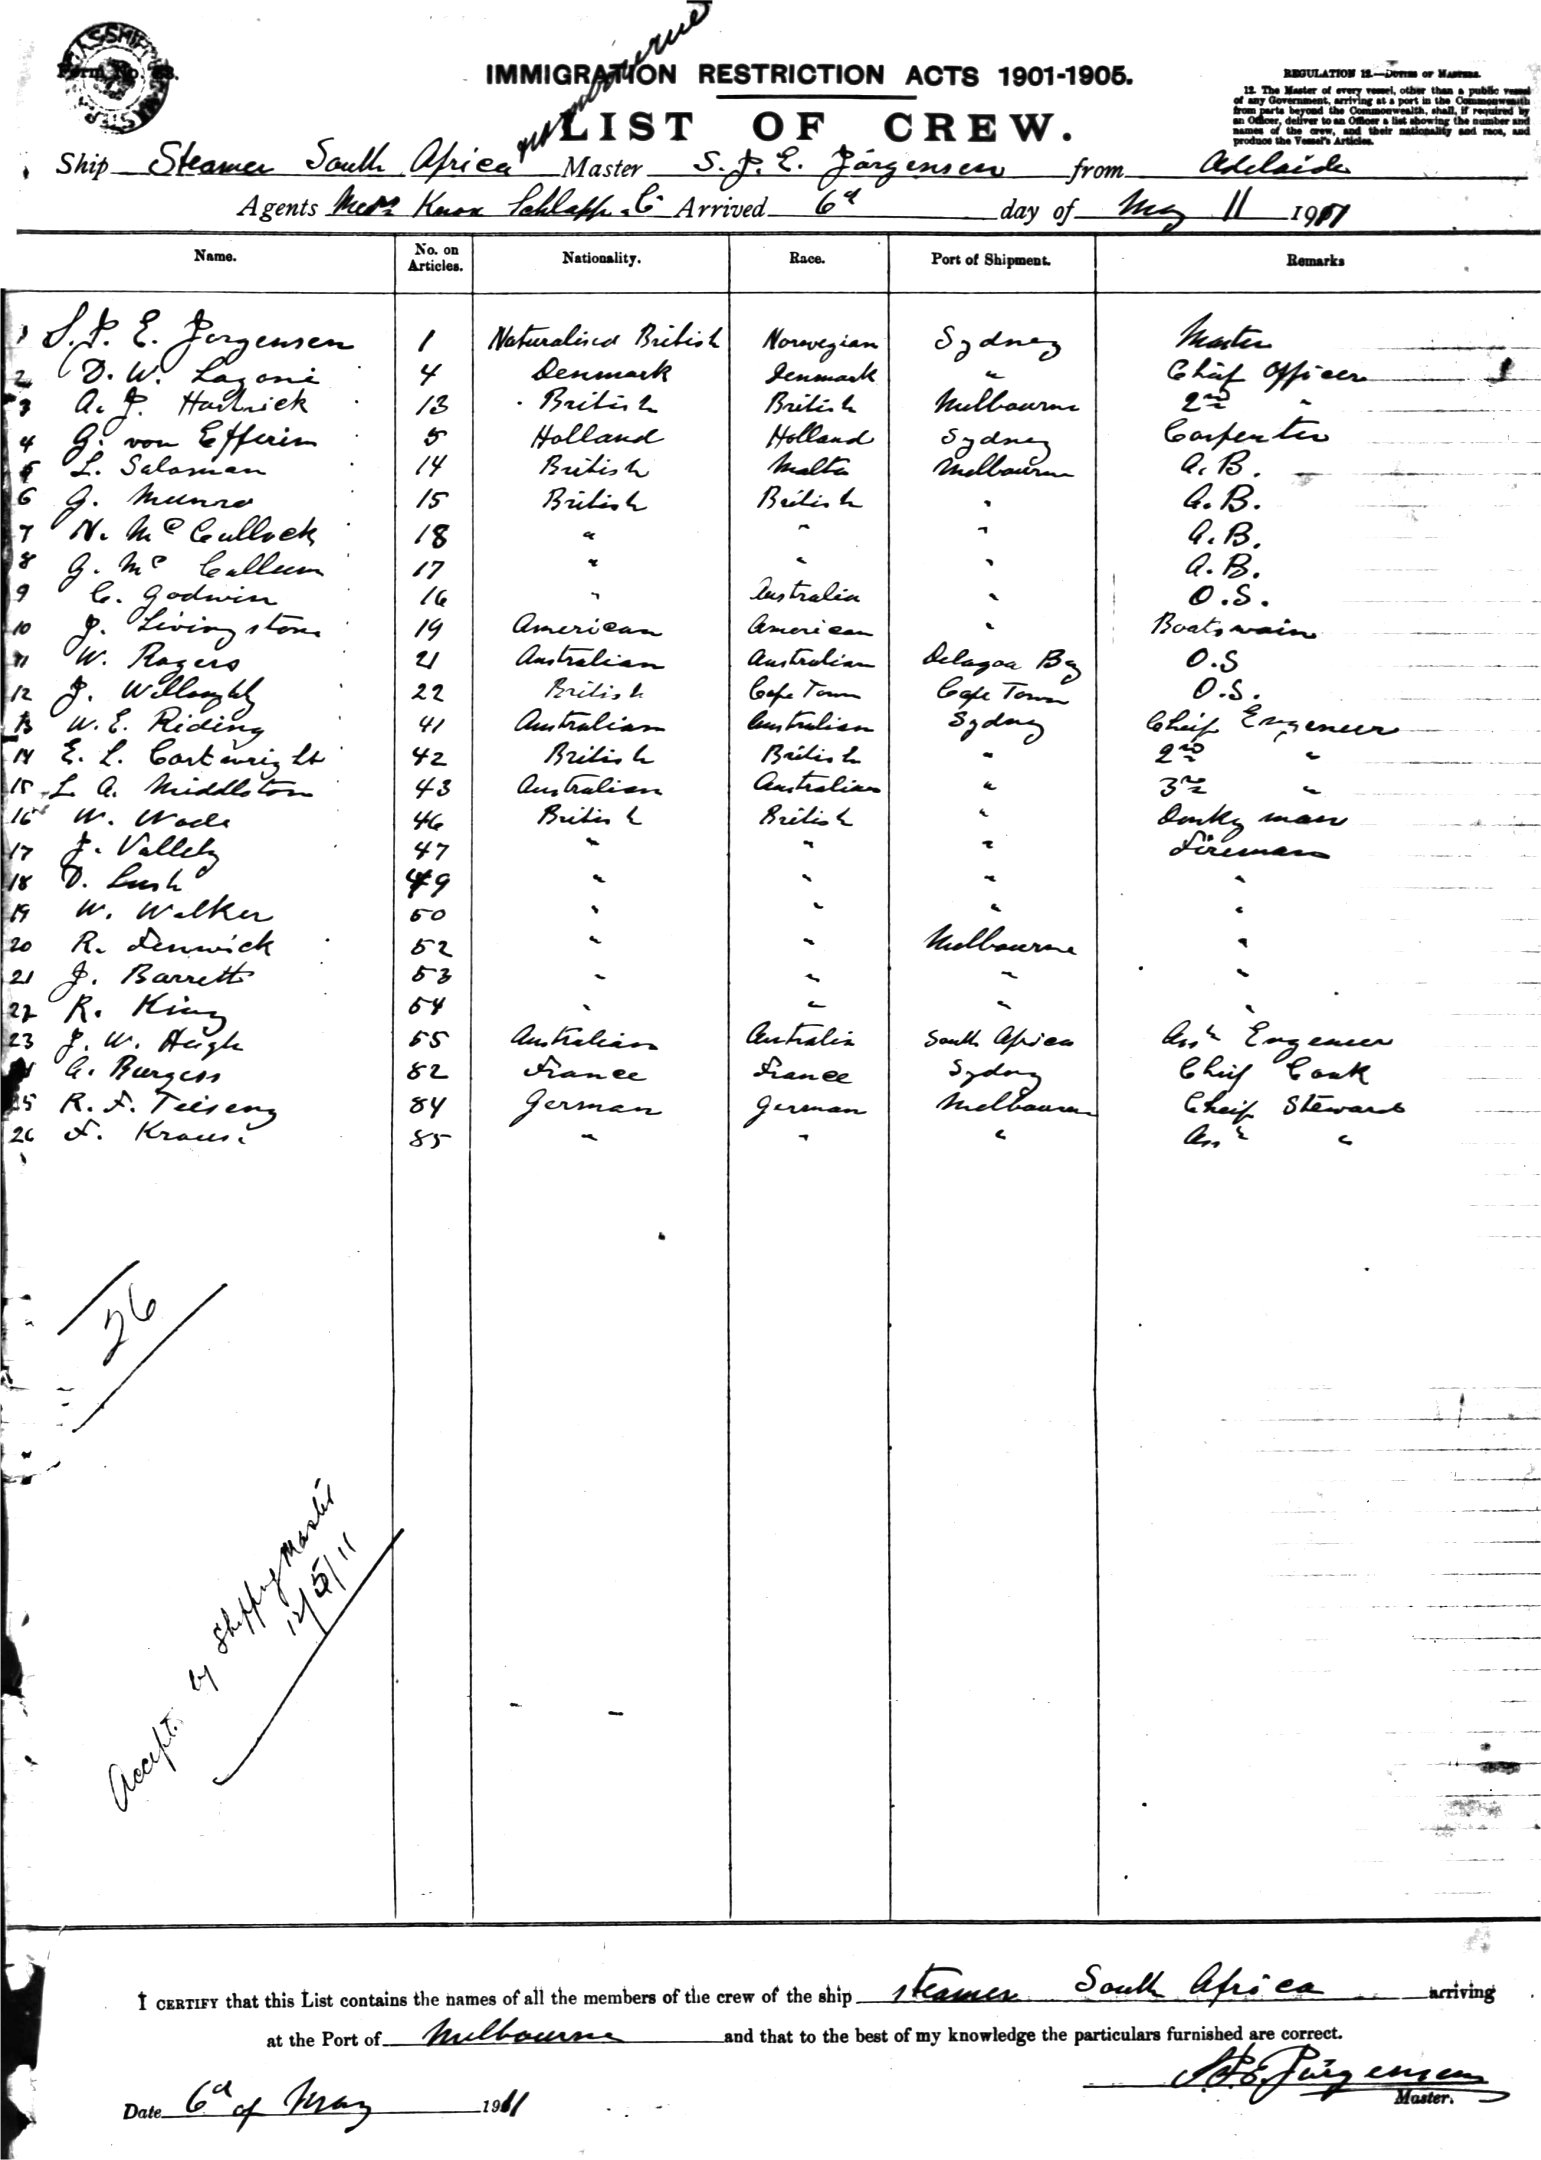 Melbourne
Form No. 33.
IMMIGRATION RESTRICTION ACTS 1901-1905.
LIST OF CREW.
REGULATION 12.—DUTIES OF MASTERS.
12. The Master of every vessel, other than a public vessel
of any Government, arriving at a port in the Commonwealth
from parts beyond the Commonwealth, shall, if required by
an Officer, deliver to an Officer a list showing the number and
names of the crew, and their nationality and race, and
produce the Vessel's Articles.
Ship Steamer South Africa Master S. J. E. Jörgensen from Adelaide
Agents Messrs Knox Schlapp & Co Arrived 6d day of May 11 1911
Name. No. on Articles. Nationality. Race. Port of Shipment. Remarks
1 S. J. E. Jorgensen 1 Naturalised British Norwegian Sydney Master
2 D. W. Lagoni 4 Denmark Denmark " Chief Officer
3 A. J. Hartrick 13 British British Melbourne 2nd "
4 G. von Efferin 5 Holland Holland Sydney Carpenter
5 L. Salaman 14 British Malta Melbourne A.B.
6 G. Munro 15 British British " A.B.
7 N. McCullock 18 " " " A.B.
8 G. Mc Callum 17 " " " A.B.
9 C. Godwin 16 " Australia " O.S.
10 J. Livingstone 19 American American " Boatswain
11 W. Rogers 21 Australian Australian Delagoa Bay O.S
12 J. Willoughby 22 British Cape Town Cape Town O.S.
13 W. E. Riding 41 Australian Australian Sydney Cheif Engeneer
14 E. L. Cartwright 42 British British " 2nd "
15 L A. Middleton 43 Australian Australian " 3rd "
16 W. Wade 46 British British " Donky man
17 J. Vallely 47 " " " Fireman
18 D. Lush 49 " " " "
19 W. Walker 50 " " " "
20 R. Fenwick 52 " " Melbourne "
21 J. Barrett 53 " " " "
22 R. King 54 " " " "
23 J. W. Hugh 55 Australian Australia South Africa Asst Engeneer
24 A. Burgess 82 France France Sydney Chief Cook
25 R. F. Teiseng 84 German German Melbourne Cheif Steward
26 F. Krause 85 " " " Asst "
26
Accept. by Shipping Master
12/5/11
I CERTIFY that this List contains the names of all the members of the crew of the ship steamer South Africa arriving
at the Port of Melbourne and that to the best of my knowledge the particulars furnished are correct.
S J E Jörgensen
Master.
Date 6d of May 1911